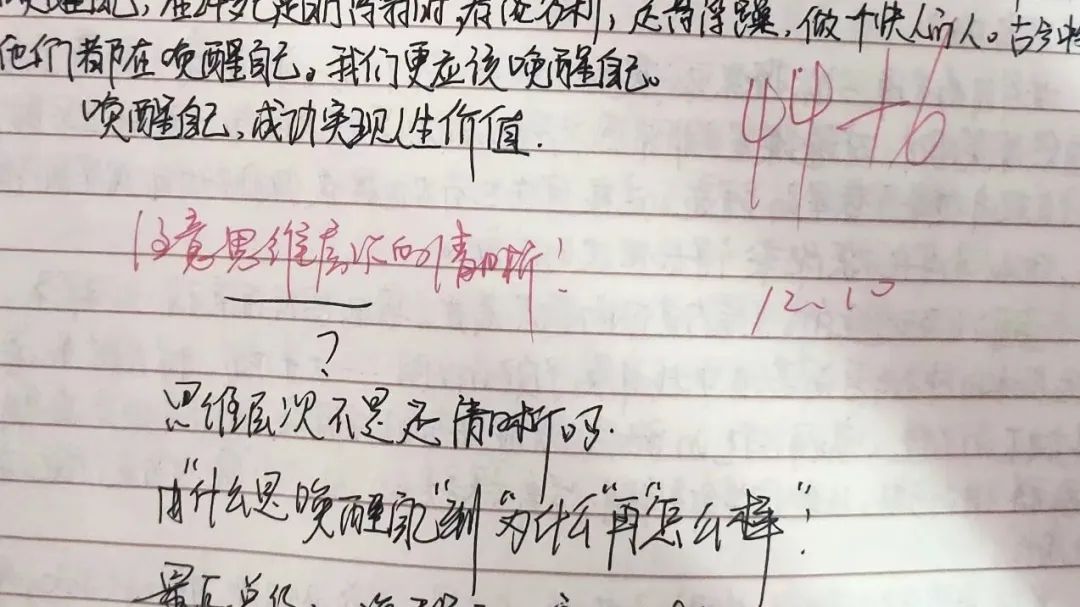 做个快人的人。古今中
他们都在唤醒自己。我们更应该唤醒自己。
唤醒自己,成功实现人生价值.
44+6
注意思维层次的清晰!
12.10
?
思维层次不是还清晰吗.
由"什么是唤醒自己"到"为什么"再"怎么样"!